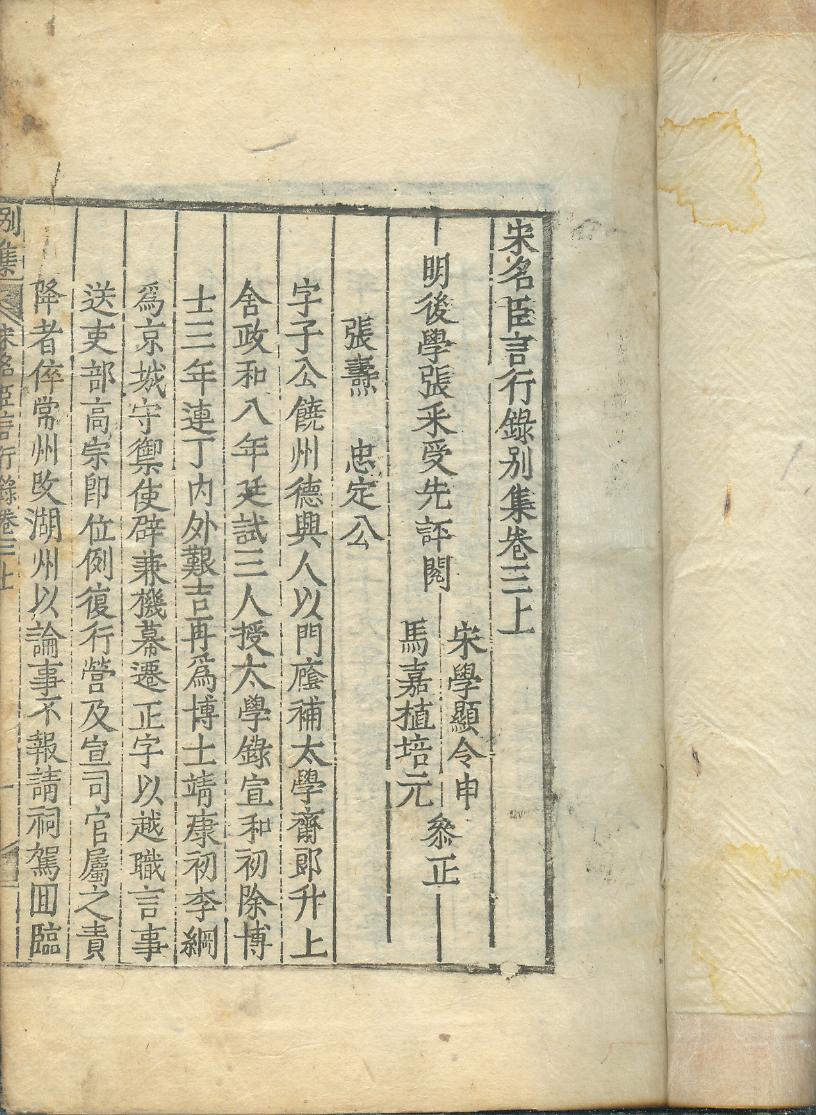 宋名臣言行錄別集卷三上
明後學張采受先評閱
宋學顯令申
馬嘉植培元
叅正
張燾 忠定公
字子公饒州德興人以門廕補太學齋郎升上
舍政和八年廷試三人授太學錄宣和初除博
士三年連丁內外艱吉再爲博士靖康初李綱
爲京城守禦使辟兼機幕遷正字以越職言事
送吏部高宗卽位例復行營及宣司官屬之責
降者倅常州改湖州以論事不報請祠駕囬臨
別集 宋名臣言行錄卷三上 一